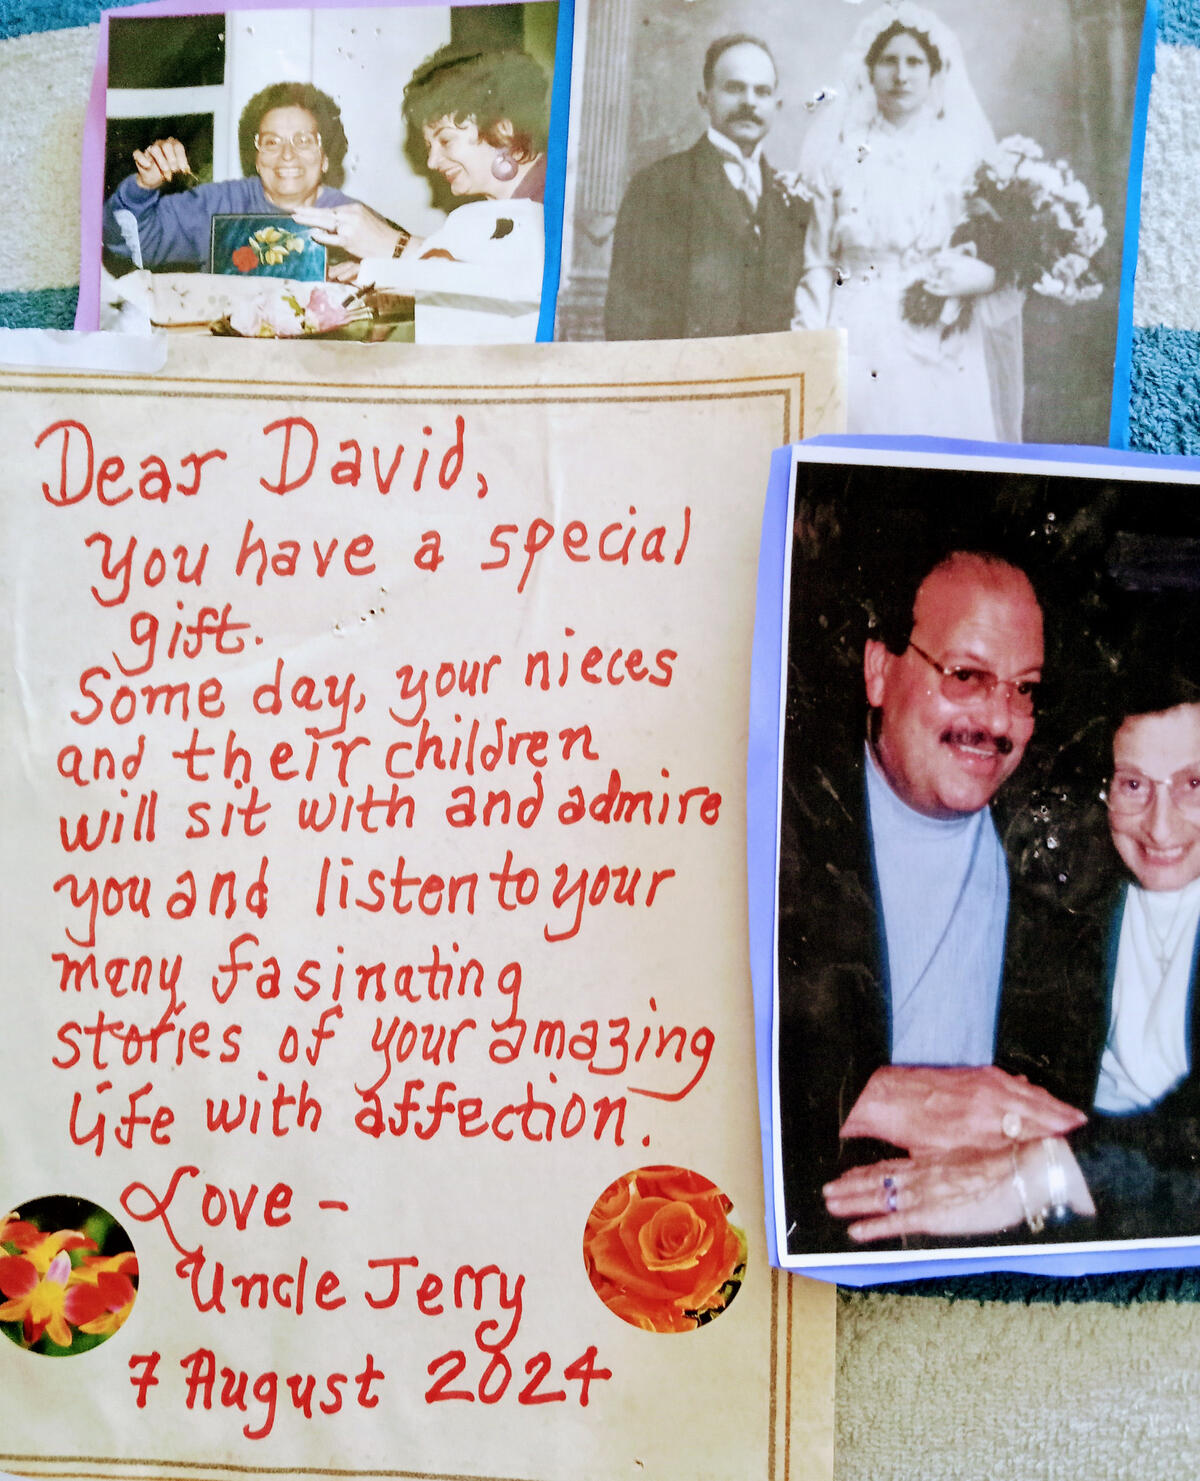 Dear David,
You have a special
gift.
Some day, your nieces
and their children
will sit with and admire
you and listen to your
many fasinating
stories of your amazing
life with affection.
Love -
Uncle Jerry
7 August 2024